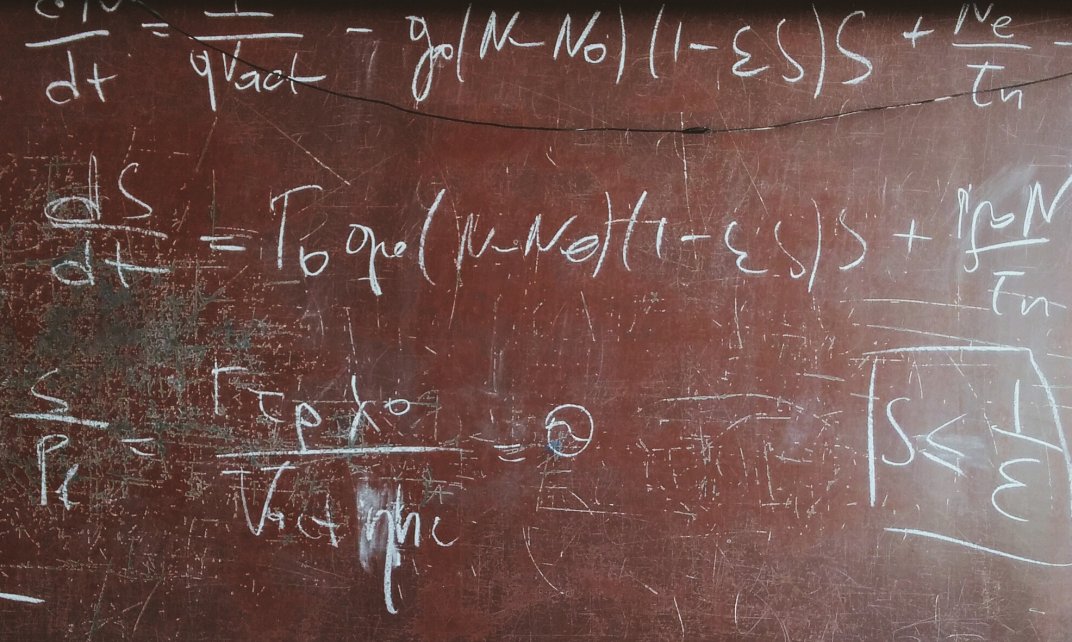 dN/dt = I/qVact - g₀(N-N₀)(1-εS)S + Ne/τn -
dS/dt = Γ₀g₀(N-N₀)(1-εS)S + N/τn
S/Pf = Γτpλ₀/Vactηhc =
S ≤ 1/ε